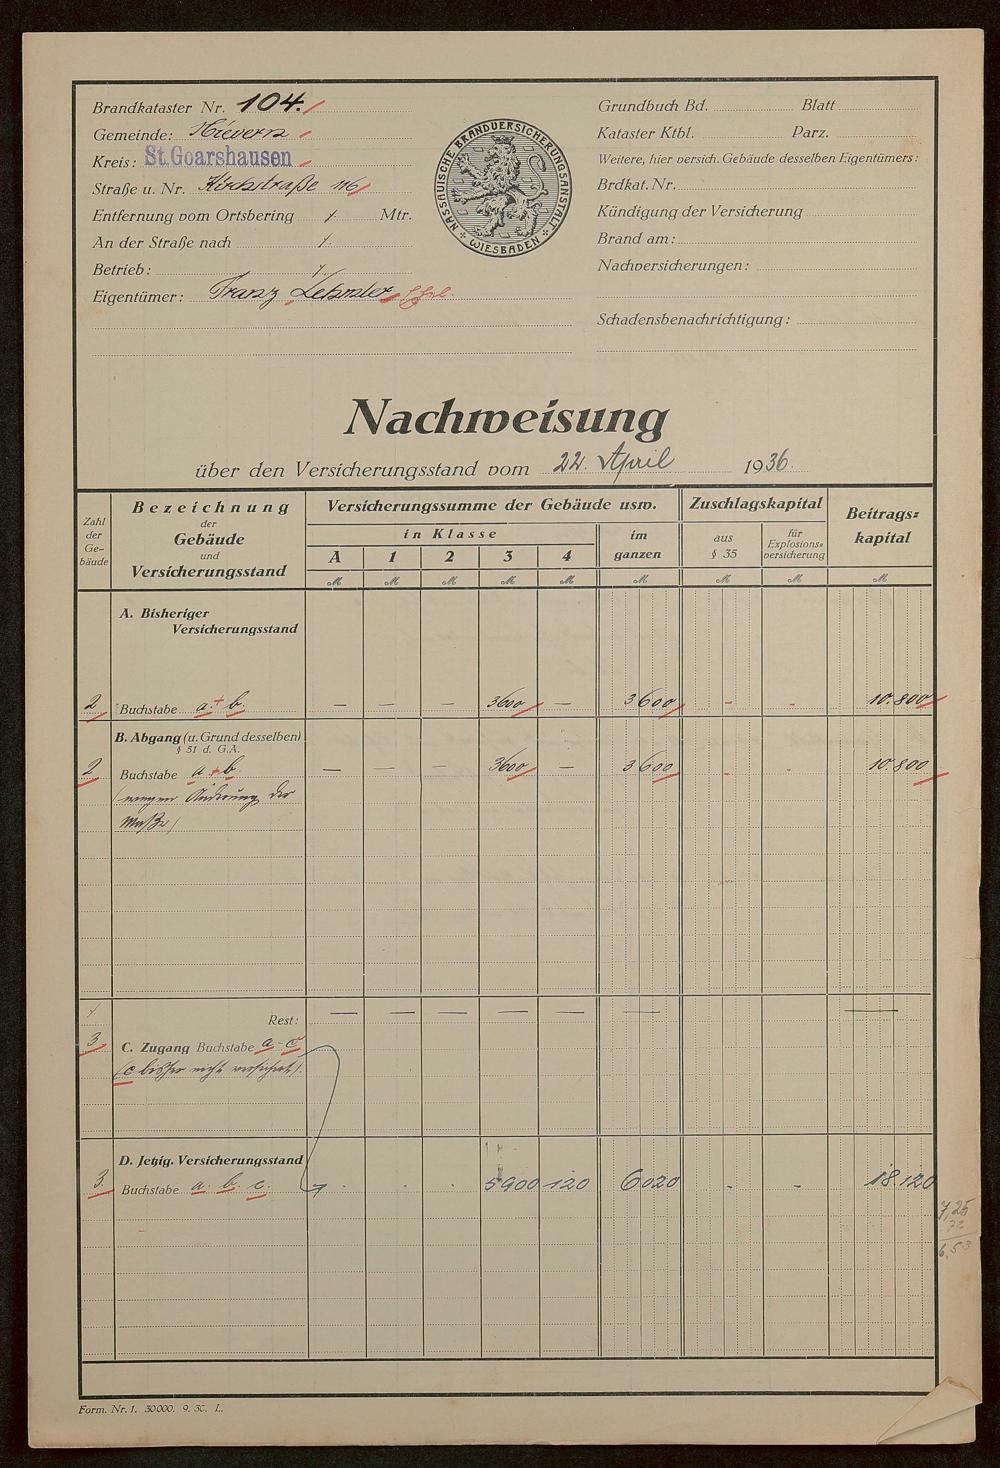 Brandkataster Nr. 104.
Gemeinde:
Kreis: St. Goarshausen
Straße u. Nr. Kirchstraße 116
Entfernung vom Ortsbering Mtr.
An der Straße nach
Betrieb:
Eigentümer: Franz
NASSAUISCHE BRANDVERSICHERUNGSANSTALT
WIESBADEN
Grundbuch Bd. Blatt
Kataster Ktbl. Parz.
Weitere, hier versich. Gebäude desselben Eigentümers:
Brdkat. Nr.
Kündigung der Versicherung
Brand am:
Nachversicherungen:
Schadensbenachrichtigung:
Nachweisung
über den Versicherungsstand vom 22. April 1936.
Zahl der Ge-bäude
Bezeichnung der Gebäude und Versicherungsstand
Versicherungssumme der Gebäude usw.
in Klasse
A 1 2 3 4
im ganzen
Zuschlagskapital
aus § 35
für Explosions-versicherung
Beitrags-kapital
M M M M M M M M M
A. Bisheriger
Versicherungsstand
2 Buchstabe a + b. — — — 3600 — 3600 - - 10.800
B. Abgang (u. Grund desselben)
§ 51 d. G.A.
2 Buchstabe a + b. — — — 3600 — 3600 - - 10.800
(wegen Änderung der
Maße)
Rest: — — — — — — —
3 C. Zugang Buchstabe a - c
(c bisher nicht versichert).
D. Jetzig. Versicherungsstand
3. Buchstabe a. b. c. - - - 5900 120 6020 - - 18120
7,25
72
6,53
Form. Nr. 1. 30000. 9. 30. L.